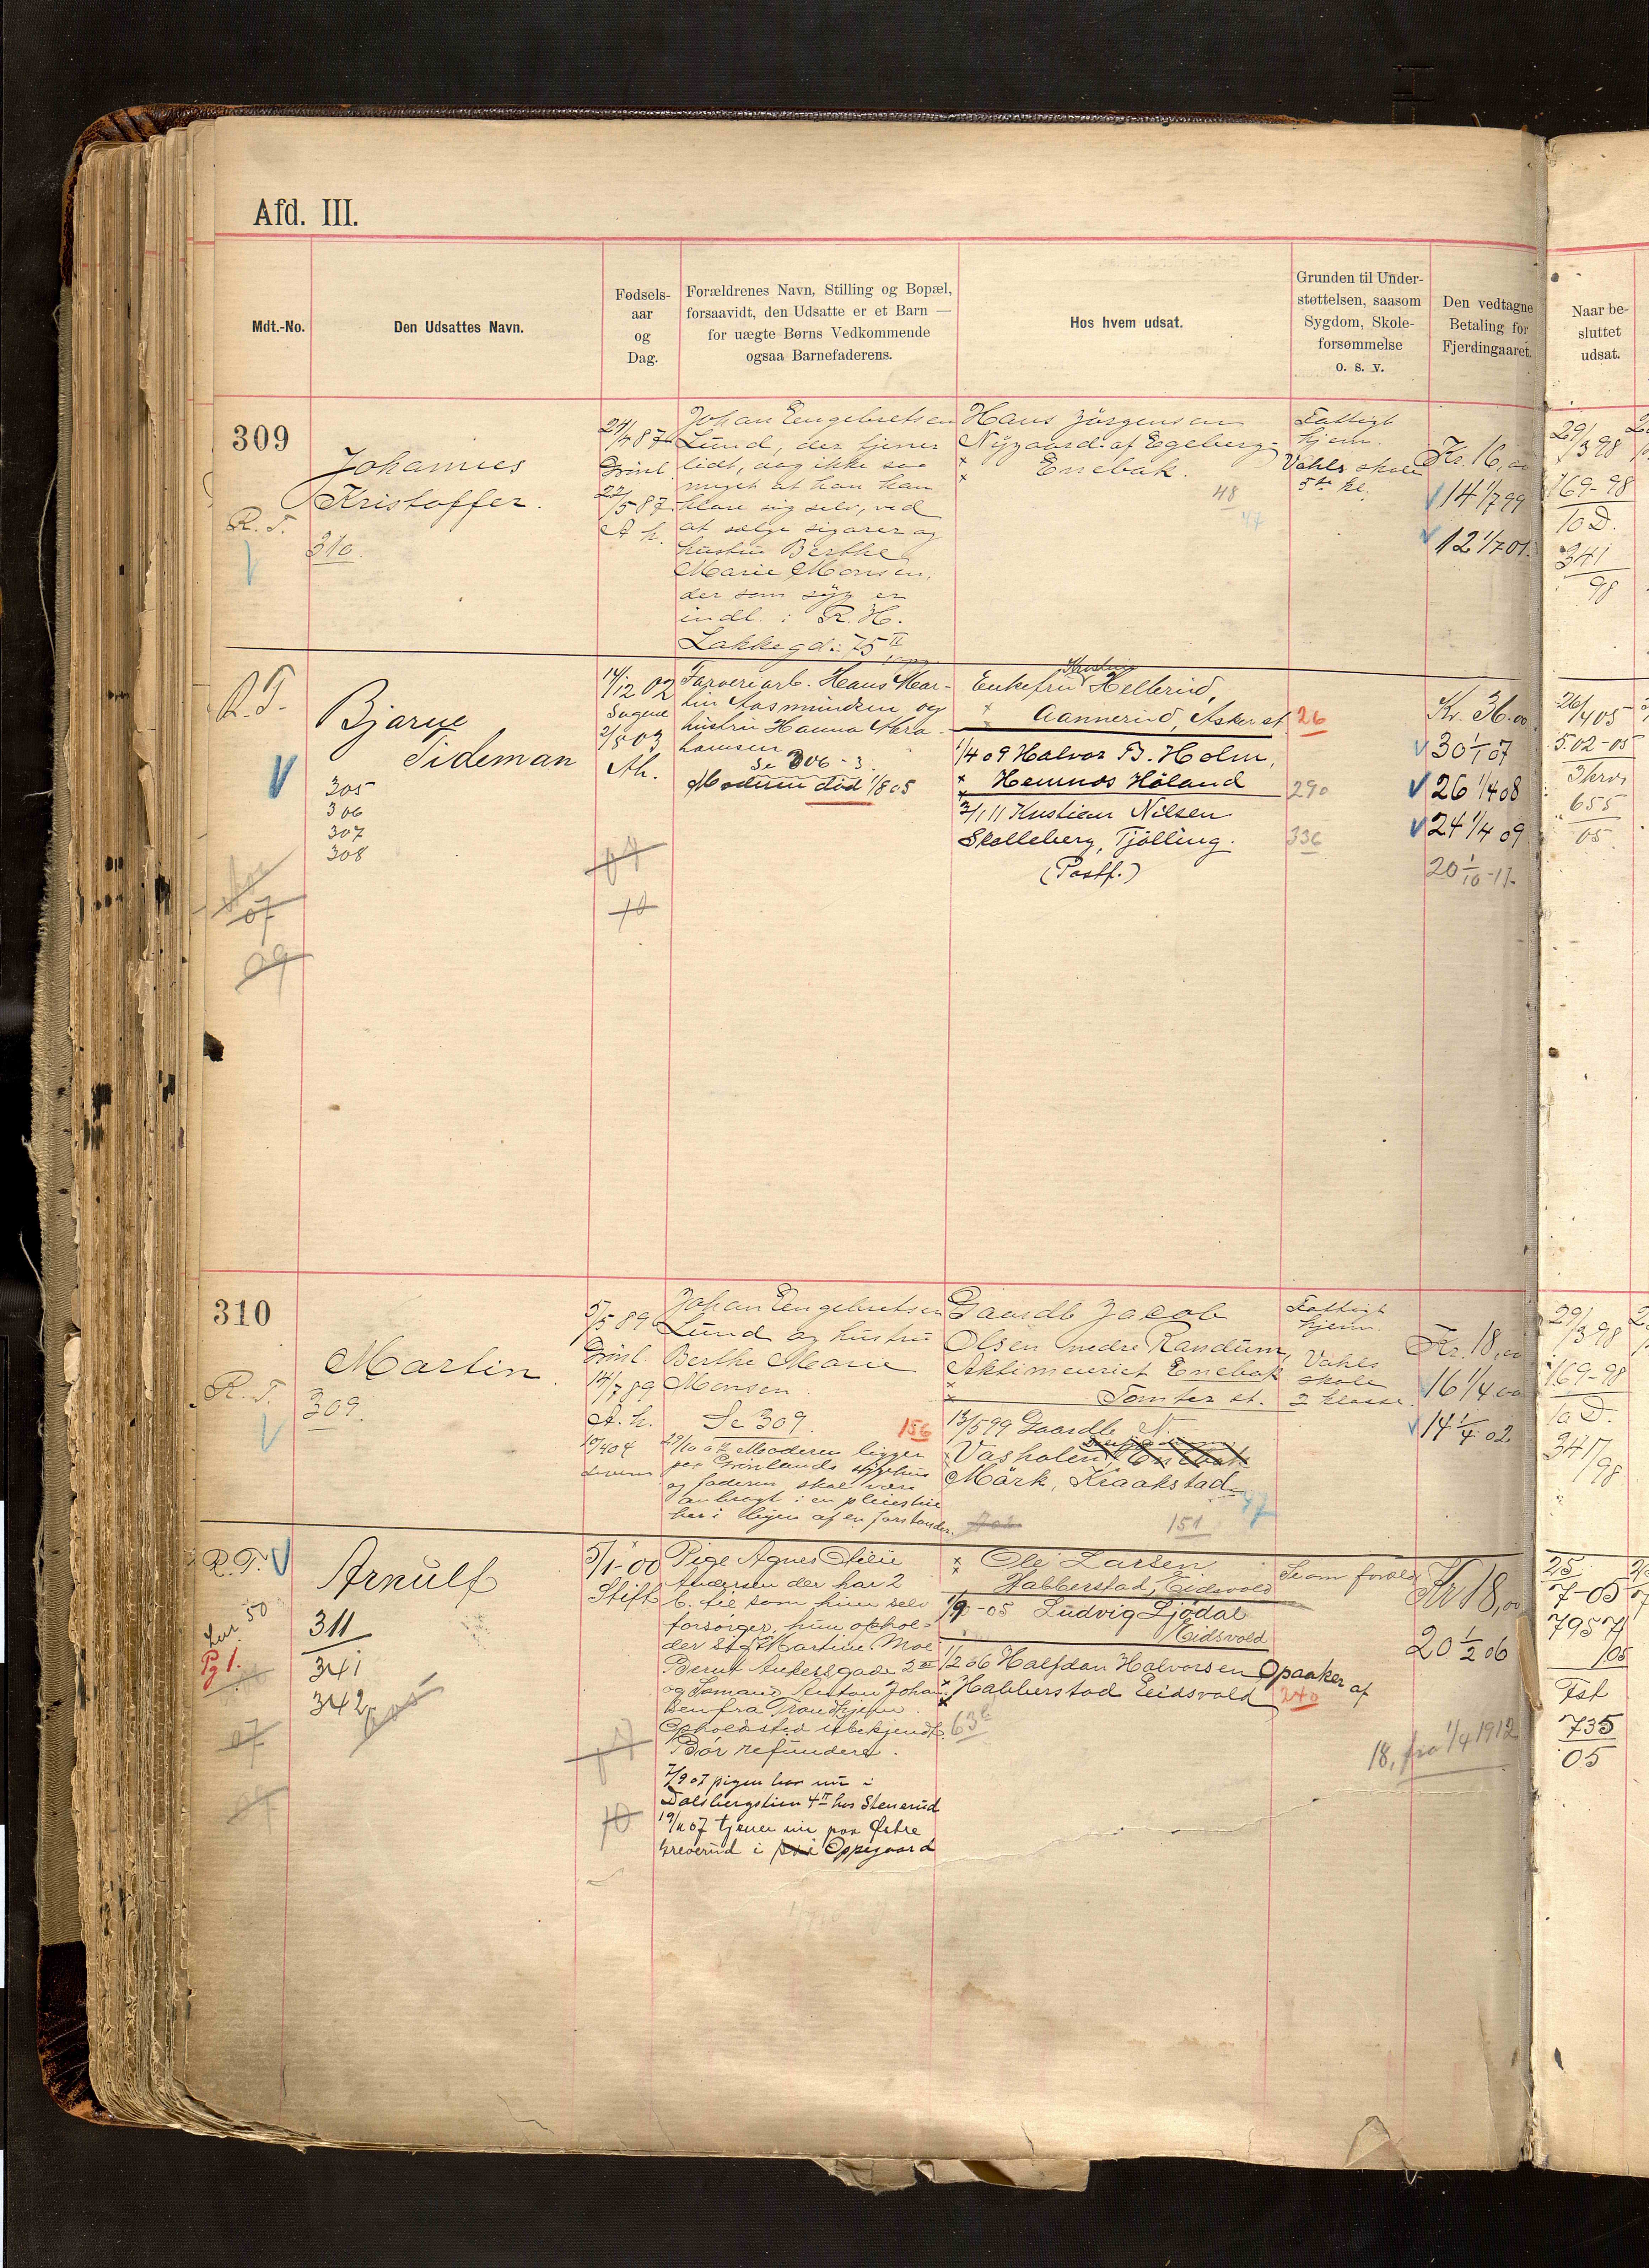 Afd. III.
Mdt.-No.
Den Udsattes Navn.
Fødsels-
aar
og
Dag.
Forældrenes Navn, Stilling og Bopæl,
forsaavidt, den Udsatte er et Barn —
for uægte Børns Vedkommende
ogsaa Barnefaderens.
Hos hvem udsat.
Grunden til Under-
støttelsen, saasom
Sygdom, Skole-
forsømmelse
o. s. v.
Den vedtagne
Betaling for
Fjerdingaaret.
Naar be-
sluttet
udsat.
309
Johannes
Kristoffer.
R. T.
310.
87
Grønl.
22/5 87.
A h.
Johan Engebretsen
Lund, der tjener
lidt, dog ikke saa
meget at han kan
klare sig selv, ved
at sælge sigarer og
hustru Berthe
Marie Monsen,
der som syg er
indl. i R. H.
Lakkegd: 75 II
Hans Jørgensen
Nygaard af Egeberg-
Enebak.
48
47
Fattigt
hjem.
Vahls skole
5te kl.
Kr. 16,00
14 1/7 99
12 1/7 01.
29/3 98
169-98
10 D.
341
98
R. T.
Bjarne
Tideman
305
306
307
308
07
09
14/12 02
Sagene
2/5 03
Ah.
10
Farveriarb. Hans Mar-
tin Aasmundsen og
hustru Hanna Abra-
hamsen
Se 306-3.
Moderen død 1/8 05
Enkefru Hellerud,
Aannerud, Asker st.
26
1/4 09 Halvor B. Holm,
Hemnæs Høland
290
2/1 11 Kristian Nilsen
Skalleberg, Tjølling.
336
(Postf.)
Kr. 36.00
30 1/1 07
26 1/4 08
24 1/4 09
20 1/10-11.
26/4 05
5.02-05
3hrvs
655
05
310
Martin
R. T.
309.
5/5 89
Grønl.
14/7 89
A. h.
10/4 04
Johan Engebretsen
Lund og hustru
Berthe Marie
Monsen.
Se 309.
156
29/10 Moderen ligger
paa Grønlands sygehus
og faderen skal være
anbragt i en pleiestue
her i byen af en forstander.
Gaardb Jacob
Olsen nedre Randum,
Aktimeeriet Enebak
Tomter st.
13/5 99 Gaardbr N.
Vasholen, Enebak
Mørk, Kraakstad
47
151
Fattigt
hjem
Vahls
skole
2 klasse.
Kr. 18,00
16 1/4 00
14 1/4 02
29/3 98
169-98
10 D.
341/98
R. T.
Arnulf
50
Pg 1.
311
341
342
07
5/1-00
Stift
10
Pige Agnes Otilie
Andersen der har 2
b. til som hun selv
forsørger, hun ophol-
der sig Martine Moe
Bernt Ankersgade 2 III
og Sømand Anton Johan-
sen fra Trondhjem.
Opholdsted ubekjendt.
Bør refundere.
7/9 07 pigen bor nu i
Dalsbergstien 4 II hos Stenerud
19/11 07 tjener nu paa Østre
Greverud i Oppegaard
Ole Larsen
Habberstad, Eidsvold
1/9-05 Ludvig Ljødal
Eidsvold
1/2 06 Halfdan Halvorsen Opaaker af
Habberstad Eidsvold
240
63
Kr 18,00
20 1/2 06
18, fra 1/4 1912
25
7-05
7957
05
Fst
735
05